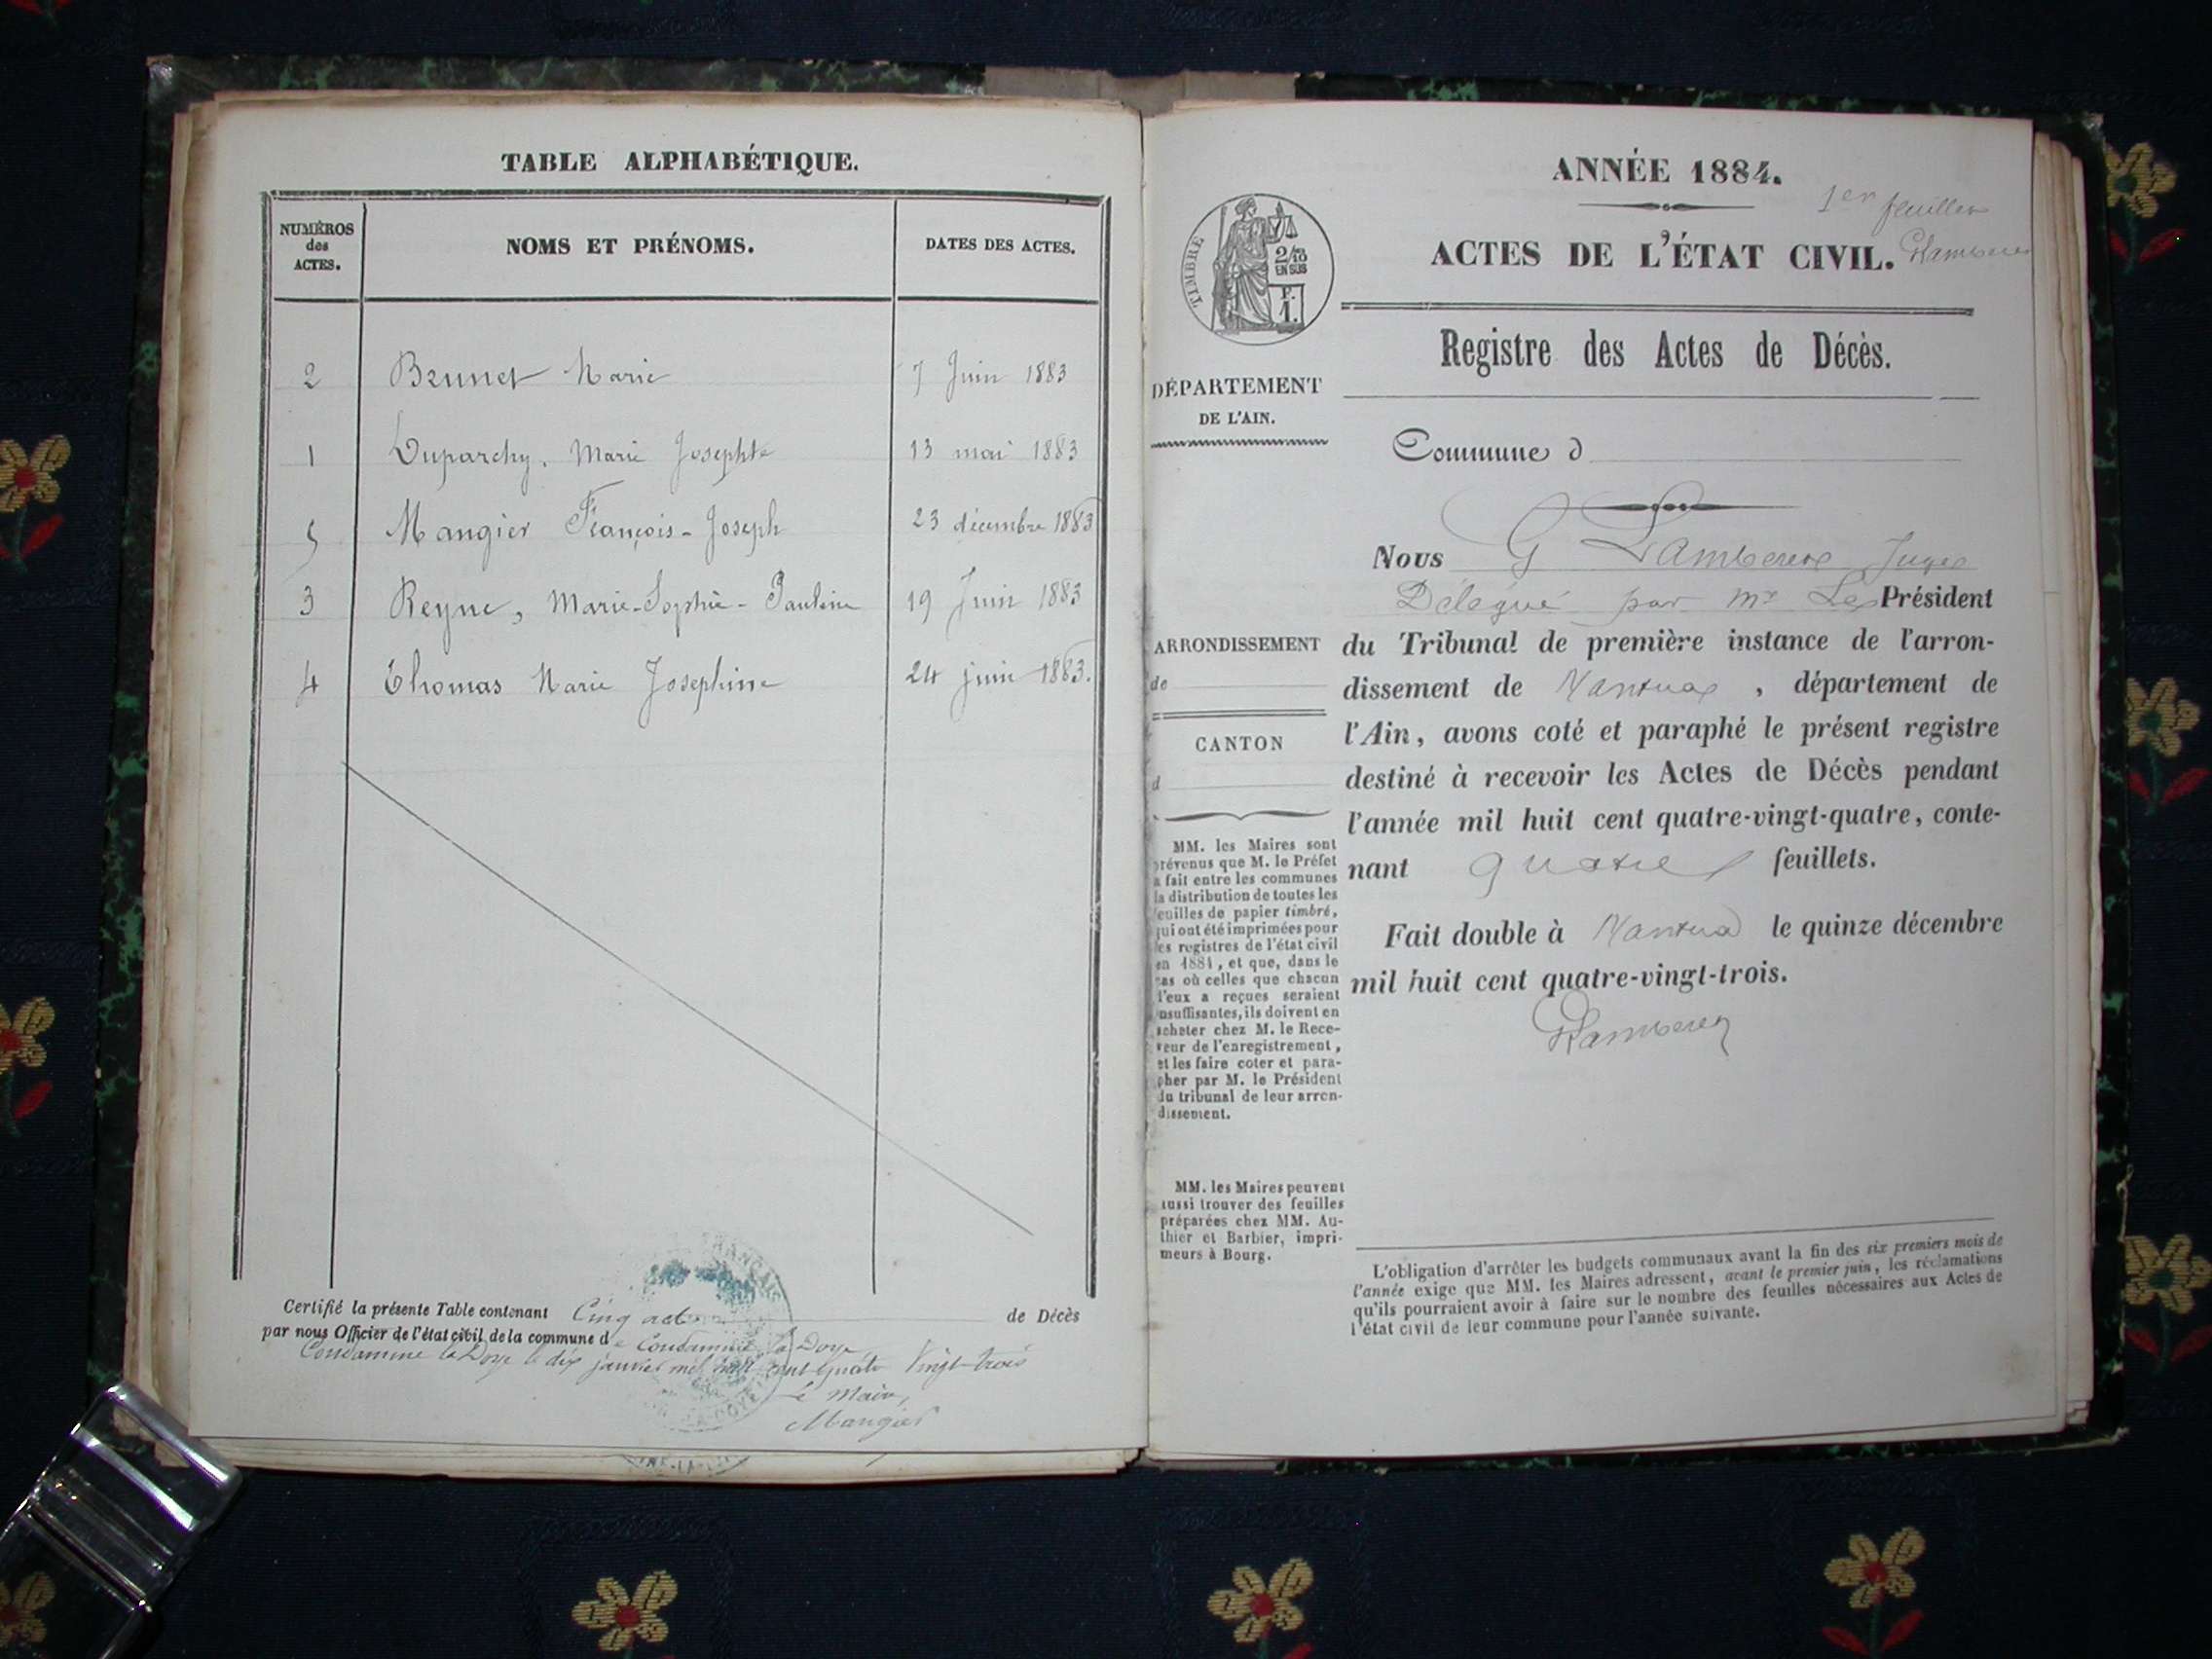 TABLE ALPHABÉTIQUE.
NUMÉROS
des
ACTES.
NOMS ET PRÉNOMS.
DATES DES ACTES.
2 Brunet Marie 7 Juin 1883
1 Duparchy, Marie Josephte 13 mai 1883
5 Mangier François-Joseph 23 décembre 1883
3 Reyne, Marie-Sophie-Pauline 19 Juin 1883
4 Thomas Marie Josephine 24 juin 1883.
Certifié la présente Table contenant Cinq actes de Décès
par nous Officier de l'état civil de la commune de Condamine la Doye
Condamine la Doye le dix janvier mil huit cent quatre Vingt trois
Le Maire,
Mangier
ANNÉE 1884.
1er feuillet
ACTES DE L'ÉTAT CIVIL.
TIMBRE
2/10
EN SUS
F.
1.
Registre des Actes de Décès.
DÉPARTEMENT
DE L'AIN.
Commune d
Nous G Lambert Juge
Délégué par Mr Le Président
ARRONDISSEMENT
de
CANTON
d
du Tribunal de première instance de l'arron-
dissement de Nantua, département de
l'Ain, avons coté et paraphé le présent registre
destiné à recevoir les Actes de Décès pendant
l'année mil huit cent quatre-vingt-quatre, conte-
nant quatre feuillets.
Fait double à Nantua le quinze décembre
mil huit cent quatre-vingt-trois.
MM. les Maires sont
prévenus que M. le Préfet
a fait entre les communes
la distribution de toutes les
feuilles de papier timbré,
qui ont été imprimées pour
les registres de l'état civil
en 1884, et que, dans le
cas où celles que chacun
d'eux a reçues seraient
insuffisantes, ils doivent en
acheter chez M. le Rece-
veur de l'enregistrement,
et les faire coter et para-
pher par M. le Président
du tribunal de leur arron-
dissement.
MM. les Maires peuvent
aussi trouver des feuilles
préparées chez MM. Au-
thier et Barbier, impri-
meurs à Bourg.
L'obligation d'arrêter les budgets communaux avant la fin des six premiers mois de
l'année exige que MM. les Maires adressent, avant le premier juin, les réclamations
qu'ils pourraient avoir à faire sur le nombre des feuilles nécessaires aux Actes de
l'état civil de leur commune pour l'année suivante.